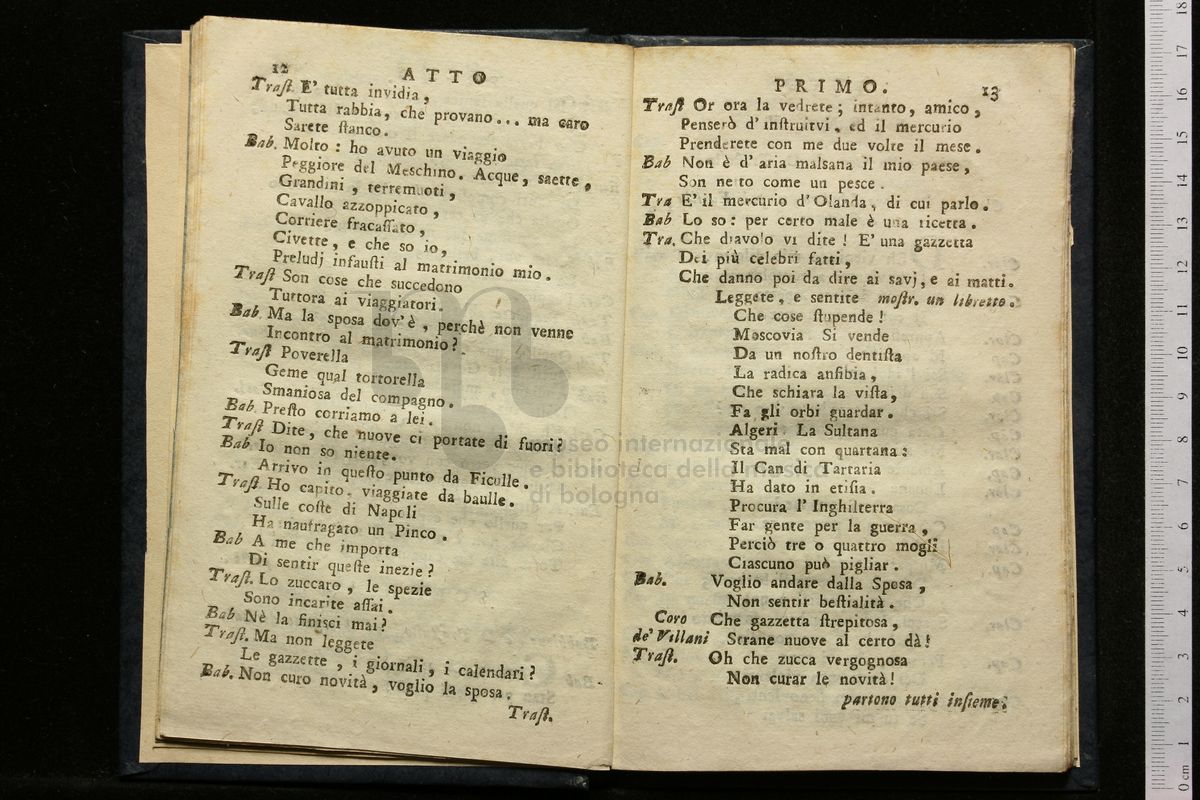 12
ATTO
Traſt. E' tutta invidia,
Tutta rabbia, che provano... ma caro
Sarete ſtanco.
Bab. Molto: ho avuto un viaggio
Peggiore del Meschino. Acque, saette,
Grandini, terremuoti,
Cavallo azzoppicato,
Corriere fracaſſato,
Civette, e che so io,
Preludj infauſti al matrimonio mio.
Traſt Son cose che succedono
Tuttora ai viaggiatori.
Bab. Ma la sposa dov'è, perchè non venne
Incontro al matrimonio?
Traſt Poverella
Geme qual tortorella
Smaniosa del compagno.
Bab. Preſto corriamo a lei.
Traſt Dite, che nuove ci portate di fuori?
Bab Io non so niente.
Arrivo in queſto punto da Ficulle.
Traſt. Ho capito. viaggiate da baulle.
Sulle coſte di Napoli
Ha naufragato un Pinco.
Bab A me che importa
Di sentir queſte inezie?
Traſt. Lo zuccaro, le spezie
Sono incarite aſſai.
Bab Nè la finisci mai?
Traſt. Ma non leggete
Le gazzette, i giornali, i calendari?
Bab. Non curo novità, voglio la sposa.
Traſt.
PRIMO.
13
Traſt Or ora la vedrete; intanto, amico,
Penserò d' inſtruirvi, ed il mercurio
Prenderete con me due volte il mese.
Bab Non è d' aria malsana il mio paese,
Son netto come un pesce.
Tra E' il mercurio d'Olanda, di cui parlo.
Bab Lo so: per certo male è una ricetta.
Tra. Che diavolo vi dite! E' una gazzetta
Dei più celebri fatti,
Che danno poi da dire ai savj, e ai matti.
Leggete, e sentite moſtr. un libretto.
Che cose ſtupende!
Moscovia Si vende
Da un noſtro dentiſta
La radica anfibia,
Che schiara la viſta,
Fa gli orbi guardar.
Algeri La Sultana
Sta mal con quartana:
Il Can di Tartaria
Ha dato in etiſia.
Procura l' Inghilterra
Far gente per la guerra,
Perciò tre o quattro mogli
Ciascuno può pigliar.
Bab. Voglio andare dalla Sposa,
Non sentir beſtialità.
Coro Che gazzetta ſtrepitosa,
de' Villani Strane nuove al certo dà!
Traſt. Oh che zucca vergognosa
Non curar le novità!
partono tutti inſieme.
museo internazionale
e biblioteca della musica
di bologna
0 cm 1 2 3 4 5 6 7 8 9 10 11 12 13 14 15 16 17 18